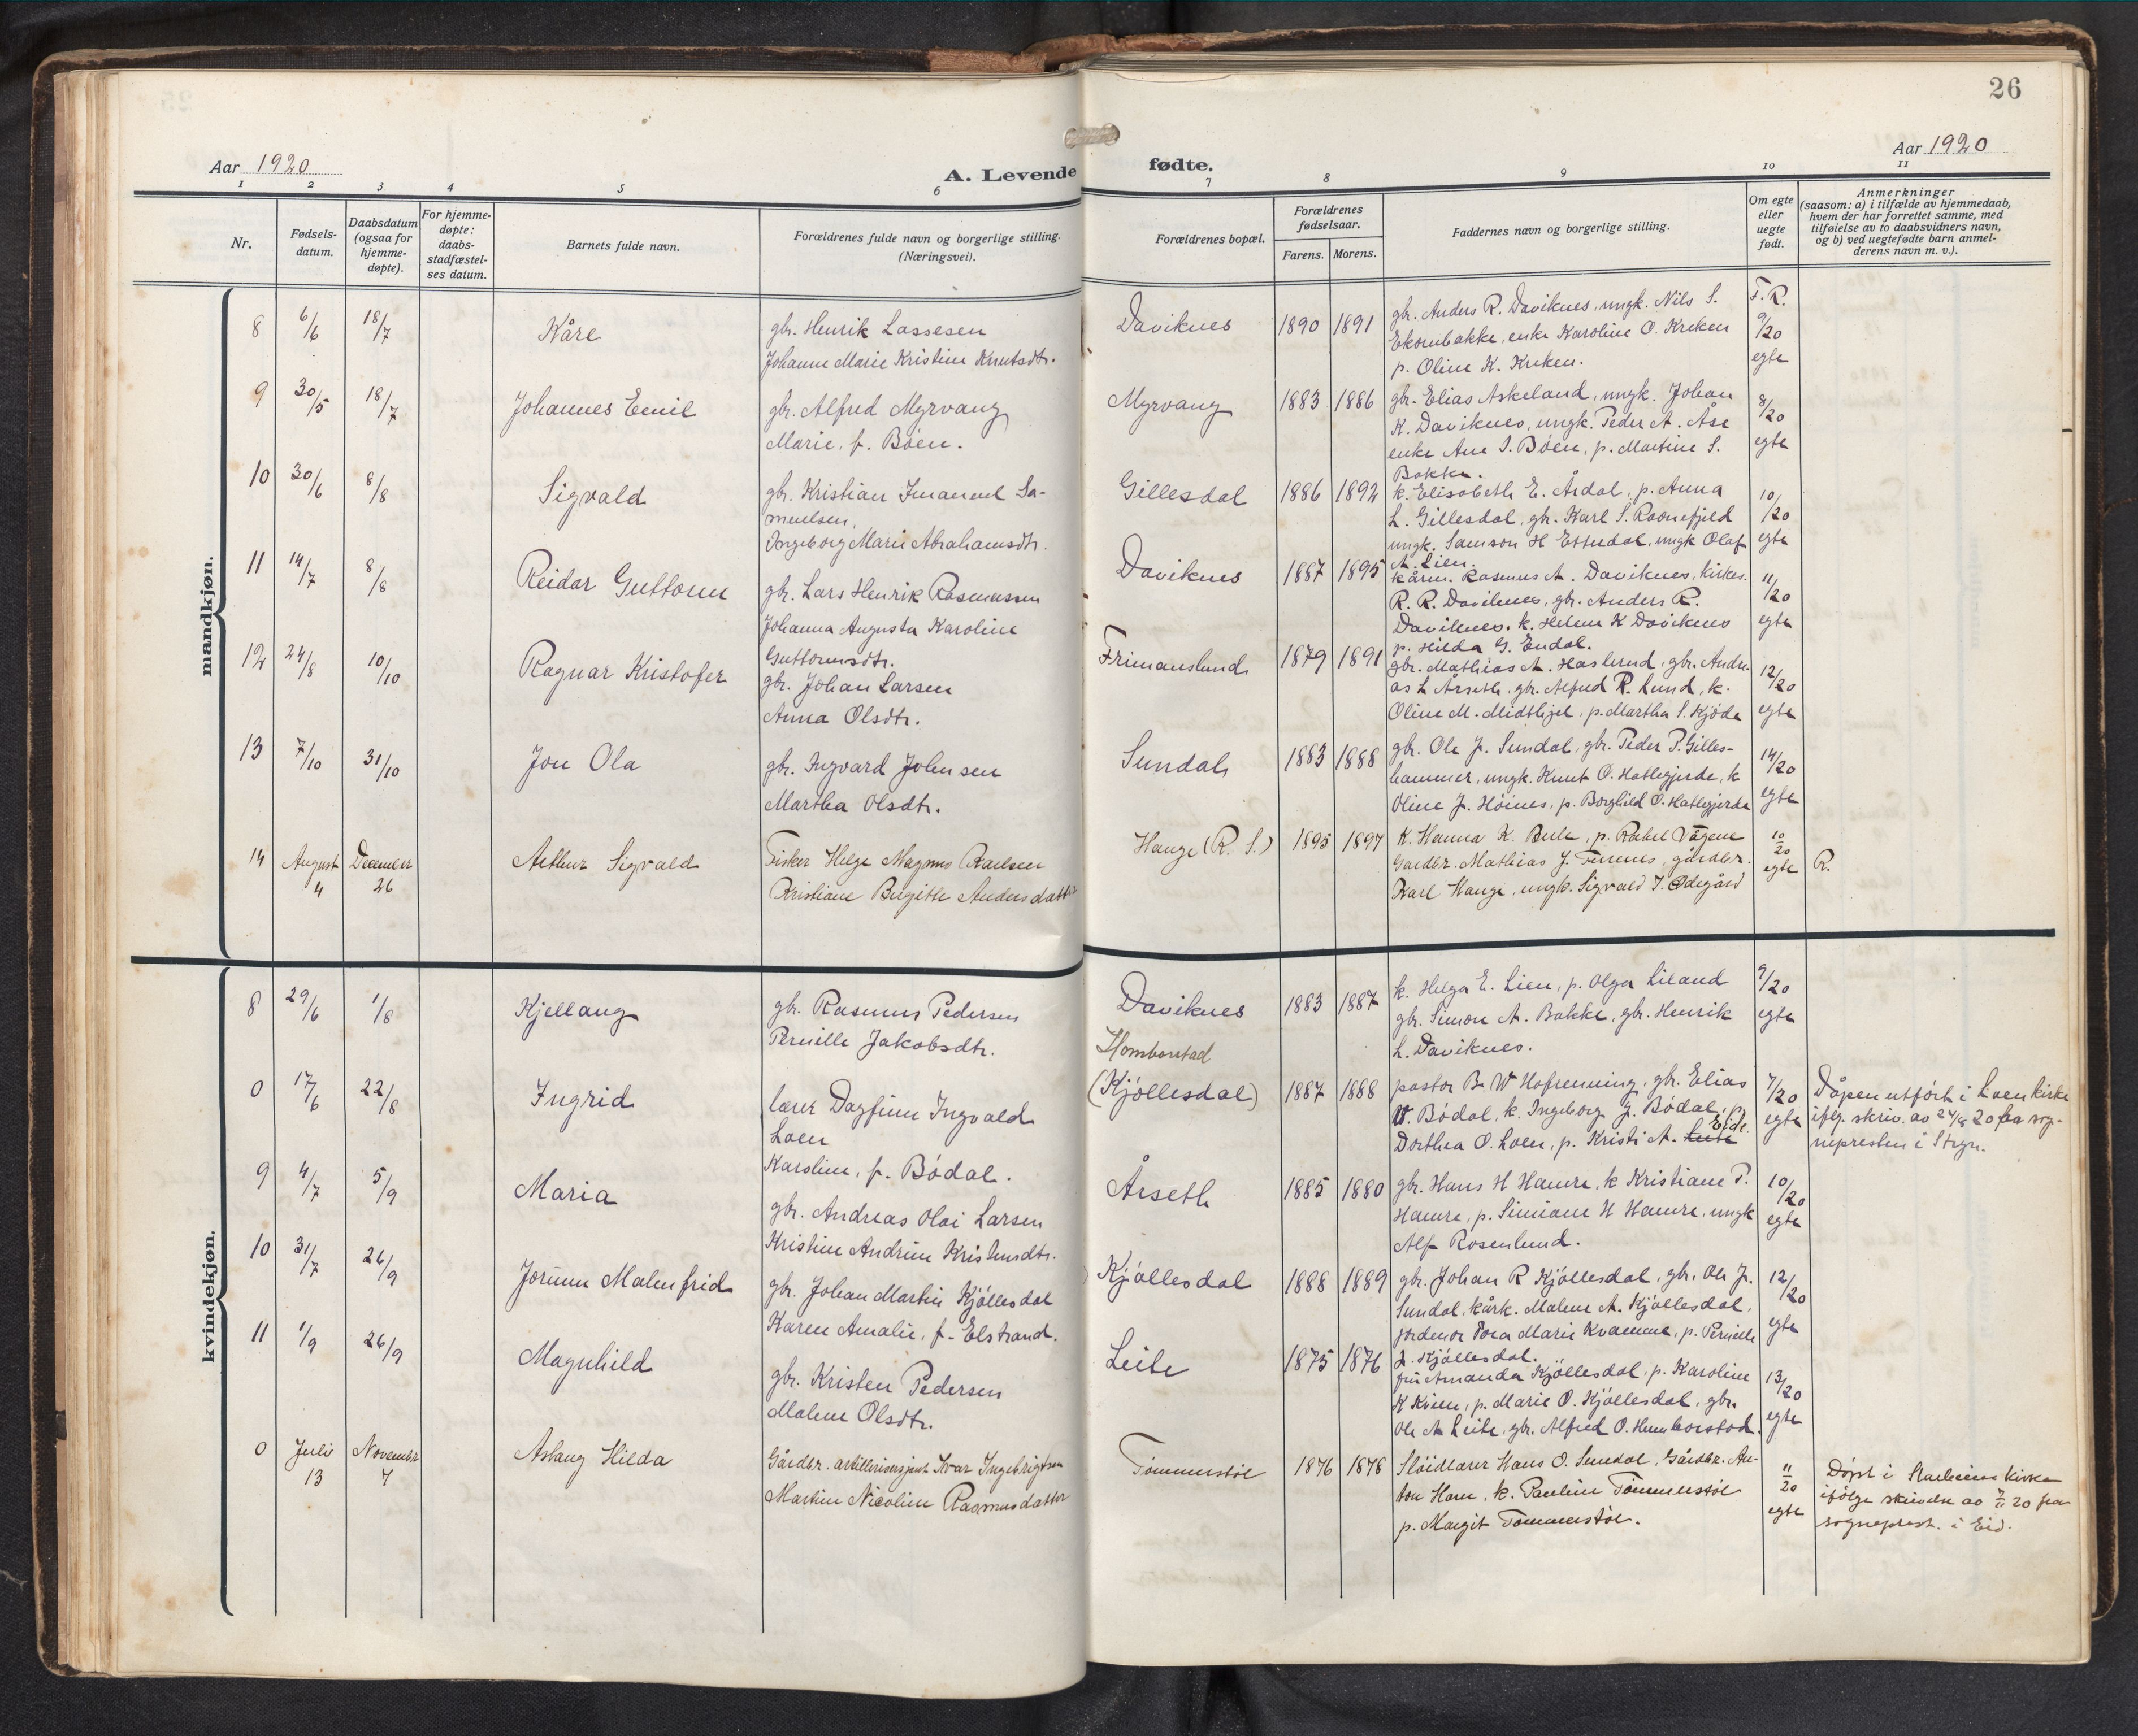 26
Aar 1920
A. Levende fødte.
Aar 1920
1 2 3 4 5 6 7 8 9 10 11
Nr.
Fødsels-
datum.
Daabsdatum
(ogsaa for
hjemme-
døpte).
For hjemme-
døpte:
daabs-
stadfæstel-
ses datum.
Barnets fulde navn.
Forældrenes fulde navn og borgerlige stilling.
(Næringsvei).
Forældrenes bopæl.
Forældrenes
fødselsaar.
Farens. Morens.
Faddernes navn og borgerlige stilling.
Om egte
eller
uegte
født.
Anmerkninger
(saasom: a) i tilfælde av hjemmedaab,
hvem der har forrettet samme, med
tilføielse av to daabsvidners navn,
og b) ved uegtefødte barn anmel-
derens navn m. v.).
mandkjøn.
8 6/6 18/7 Kåre
gbr. Henrik Lassesen
Johanne Marie Kristine Knutsdtr.
Daviknes 1890 1891
gbr. Anders R. Daviknes, ungk. Nils S.
Ekornbakke, enke Karoline O. Kreken
p. Oline K. Kreken.
F.R.
9/20
egte
9 30/5 18/7 Johannes Emil
gbr. Alfred Myrvang
Marie, f. Bøen.
Myrvang 1883 1886
gbr. Elias Askeland, ungk. Johan
K. Daviknes, ungk. Peder A. Åse
enke Ane S. Bøen, p. Martine S.
Bakke.
8/20
egte
10 30/6 8/8 Sigvald
gbr. Kristian Imanuel Sa-
muelsen,
Ingeborg Marie Abrahamsdtr.
Gillesdal 1886 1892
k. Elisabeth E. Årdal, p. Anna
L. Gillesdal, gbr. Karl S. Ravnefjeld
ungk. Samson H Endal, ungk Olaf
A. Lien.
10/20
egte
11 14/7 8/8 Reidar Guttorm
gbr. Lars Henrik Rasmussen
Johanna Augusta Karoline
Guttormsdtr.
Daviknes 1887 1895
kårm. Rasmus A. Daviknes, kirkes.
R. R. Daviknes, gbr. Anders R.
Daviknes, k. Helene K Daviknes
p. Hilda G. Endal.
11/20
egte
12 24/8 10/10 Ragnar Kristofer
gbr. Johan Larsen
Anna Olsdtr.
Frimannslund 1879 1891
gbr. Mathias A. Haslund, gbr. Andre-
as L Årseth, gbr. Alfred R. Lund, k.
Oline M. Midthjel, p. Martha S. Kjøde
12/20
egte
13 7/10 31/10 Jon Ola
gbr. Ingvard Johnsen
Martha Olsdtr.
Sundal 1883 1888
gbr. Ole J. Sundal, gbr. Peder P. Gilles-
hammer, ungk. Knut O. Hatlegjerde, k
Oline J. Høines, p. Borghild O. Hatlegjerde
14/20
egte
14 August 4 December 26 Arthur Sigvald
Fisker Helge Magnus Karlsen
Kristiane Birgitte Andersdatter
Hauge (R. S.) 1895 1897
K. Hanna K. Berle, p. Rakel Vågene
Gardbr. Mathias J. Finnes, gårdbr.
Karl Hauge, ungk. Sigvald J. Ødegård
10/20
egte
R.
kvindekjøn.
8 29/6 1/8 Kjellaug
gbr. Rasmus Pedersen
Pernille Jakobsdtr.
Daviknes 1883 1887
k. Helga E. Lien, p. Olga Liland
gbr. Simon A. Bakke, gbr. Henrik
L. Daviknes.
9/20
egte
0 17/6 22/8 Ingrid
lærer Dagfinn Ingvald
Loen
Karoline, f. Bødal.
Homborstad
(Kjøllesdal) 1887 1888
pastor B. W Hofrenning, gbr. Elias
W. Bødal, k. Ingeborg J. Bødal, p.
Dorthea O. Loen, p. Kristi A. Eide.
7/20
egte
Dåpen utført i Loen kirke
iflg. skriv. av 24/8 20 fra sog-
nepresten i Stryn.
9 4/7 5/9 Maria
gbr. Andreas Olai Larsen
Kristine Andrine Kristensdtr.
Årseth 1885 1880
gbr. Hans H Hamre, k Kristiane P.
Hamre, p. Simiane H Hamre, ungk
Alf Rosenlund.
10/20
egte
10 31/7 26/9 Jorunn Malenfrid
gbr. Johan Martin Kjøllesdal
Karen Amalie, f. Elstrand.
Kjøllesdal 1888 1889
gbr. Johan R Kjøllesdal, gbr. Ole J.
Sundal, kårk. Malene A. Kjøllesdal,
jordmor Tora Marie Kvamme, p. Pernille
J. Kjøllesdal.
12/20
egte
11 1/9 26/9 Magnhild
gbr. Kristen Pedersen
Malene Olsdtr.
Leite 1875 1876
fru Amanda Kjøllesdal, p. Karoline
K Kvien, p. Marie O. Kjøllesdal, gbr.
Ole A Leite, gbr. Alfred O. Humborstad.
13/20
egte
0 Juli 13 November 7 Aslaug Hilda
Gårdbr. artillerisersjant Ivar Ingebrigtsen
Martine Nicoline Rasmusdatter
Tømmerstøl 1876 1878
Sløidlærer Hans O. Sundal, Gårdbr. An-
ton Ham, k. Pauline Tømmerstøl
p. Margit Tømmerstøl.
11/20
egte
Døpt i Starheim kirke
ifølge skrivelse av 7/11 20 fra
sogneprest. i Eid.